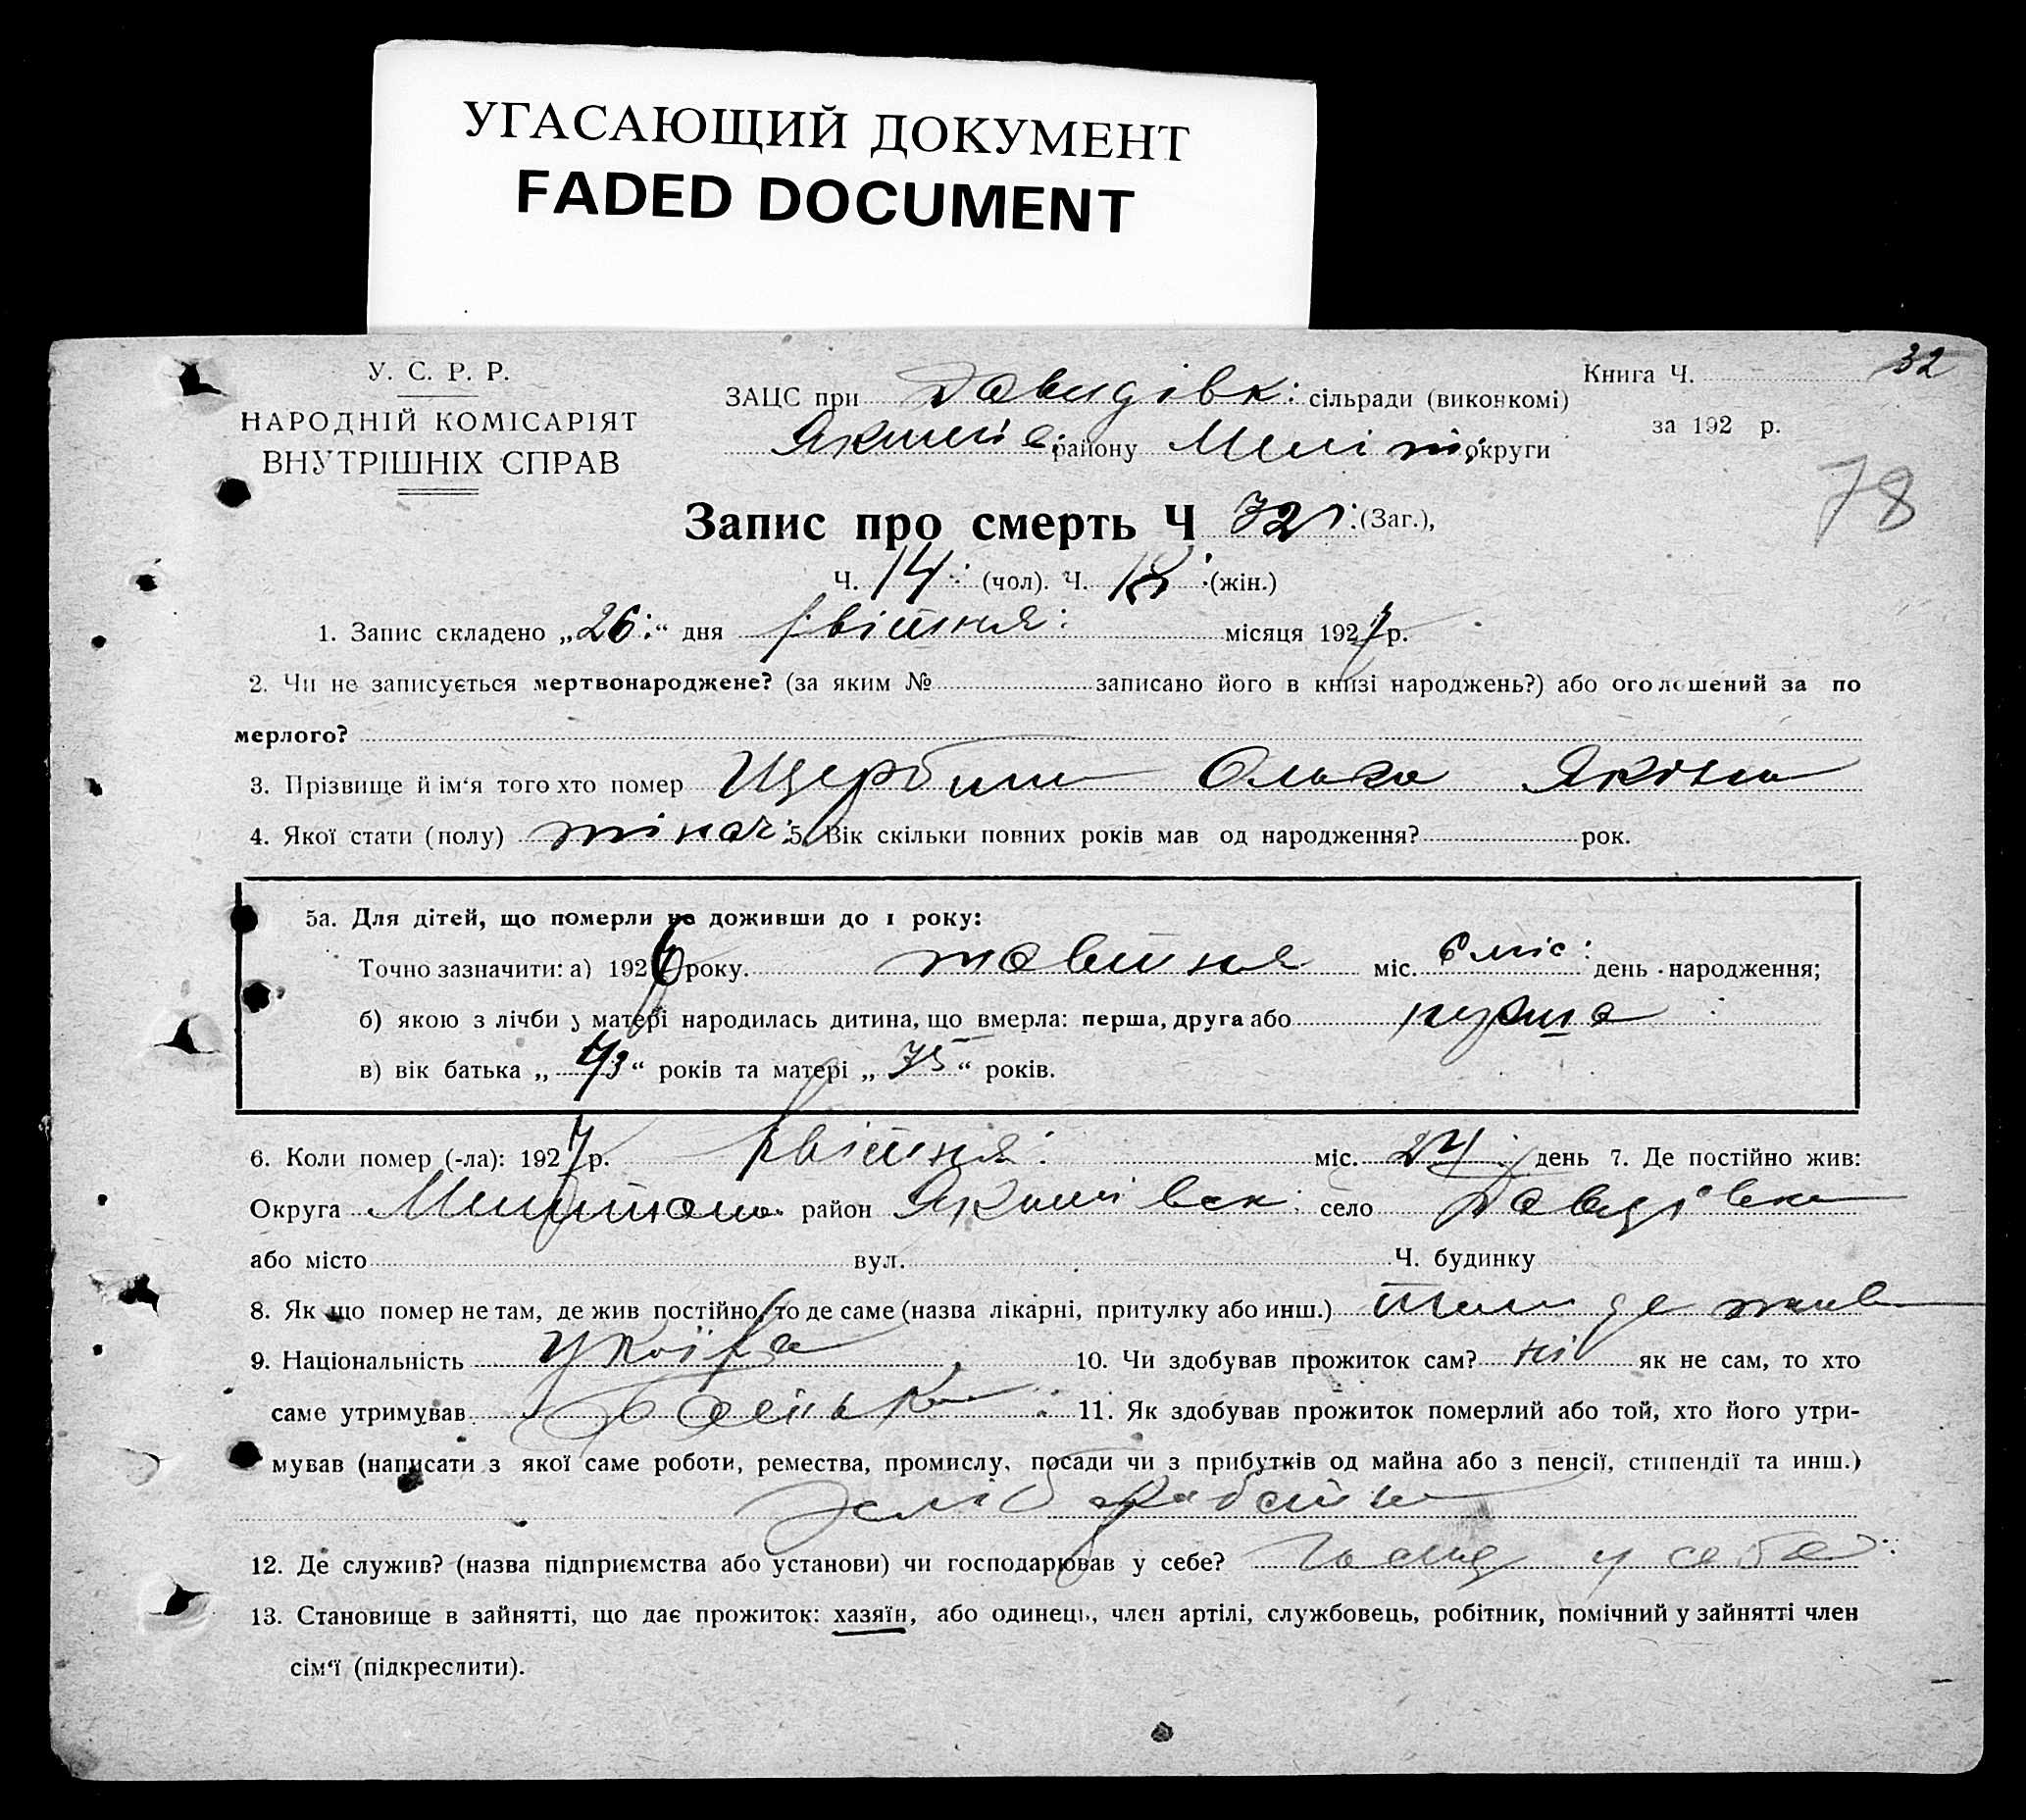 УГАСАЮЩИЙ ДОКУМЕНТ
FADED DOCUMENT
32
У. С. Р. Р.
НАРОДНІЙ КОМІСАРІЯТ
ВНУТРІШНІХ СПРАВ
ЗАЦС при Давидівк: сільради (виконкомі)
району Меліт: округи
Книга Ч.
за 192 р.
78
Запис про смерть Ч 32 (Заг.),
Ч. 14: (чол). Ч. 18 (жін.)
1. Запис складено „26:“ дня квітня: місяця 1927 р.
2. Чи не записується мертвонароджене? (за яким № записано його в книзі народжень?) або оголошений за по
мерлого?
3. Прізвище й ім‘я того хто помер Щербина Ольга
4. Якої стати (полу) жіноч: 5. Вік скільки повних років мав од народження? рок.
5а. Для дітей, що померли не доживши до 1 року:
Точно зазначити: а) 1926 року. жовтня міс. 6 міс: день народження;
б) якою з лічби у матері народилась дитина, що вмерла: перша, друга або перша
в) вік батька „ “ років та матері „ “ років.
6. Коли помер (-ла): 1927 р. квітня: міс. 24 день 7. Де постійно жив:
Округа район Якимівськ: село Давидівка
або місто вул. Ч. будинку
8. Як що помер не там, де жив постійно, то де саме (назва лікарні, притулку або инш.) там де жив
9. Національність Україн 10. Чи здобував прожиток сам? ні як не сам, то хто
саме утримував батько 11. Як здобував прожиток померлий або той, хто його утри-
мував (написати з якої саме роботи, ремества, промислу, посади чи з прибутків од майна або з пенсії, стипендії та инш.)
12. Де служив? (назва підприємства або установи) чи господарював у себе? у себе
13. Становище в зайнятті, що дає прожиток: хазяїн, або одинець, член артілі, службовець, робітник, помічний у зайнятті член
сім‘ї (підкреслити).